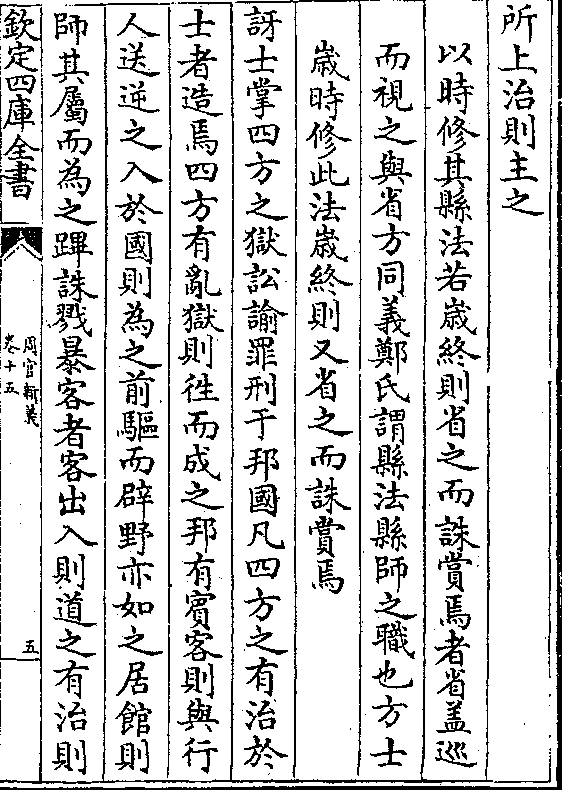 所上治則主之
以時修其縣法若嵗終則省之而誅賞焉者省盖巡
而視之與省方同義鄭氏謂縣法縣師之職也方士
嵗時修此法嵗終則又省之而誅賞焉
訝士掌四方之獄訟諭罪刑于邦國凡四方之有治於
士者造焉四方有亂獄則徃而成之邦有賔客則與行
人送逆之入於國則為之前驅而辟野亦如之居館則
師其屬而為之蹕誅戮暴客者客出入則道之有治則
欽定四庫全書
周官新義
卷十五
五